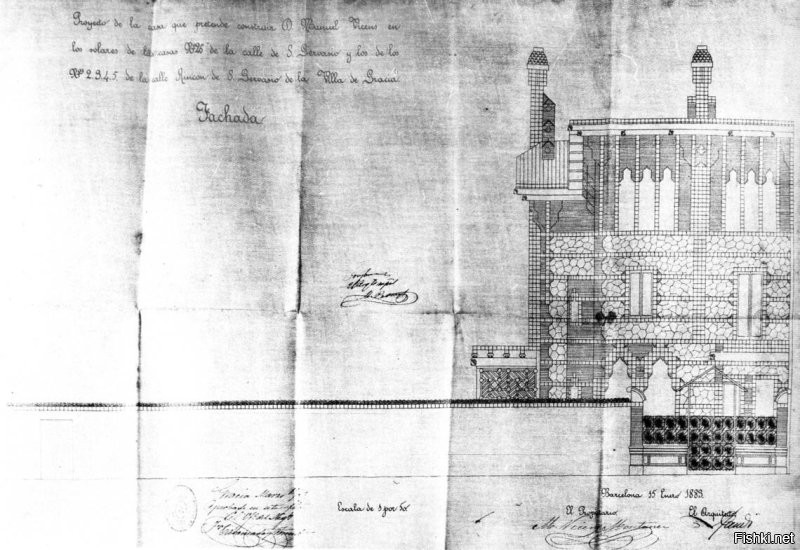 Proyecto de la casa que pretende construir D. Manuel Vicens en
los solares de las casas de la calle de S. Gervasio y los de los
Nº 2.3.4.5. de la calle Rincon de S. Gervasio de la Villa de Gracia
Fachada
Gracia
Escala de 1 por 50
Barcelona 15 Enero 1883.
El Propietario
El Arquitecto
Gaudí
Fishki.net